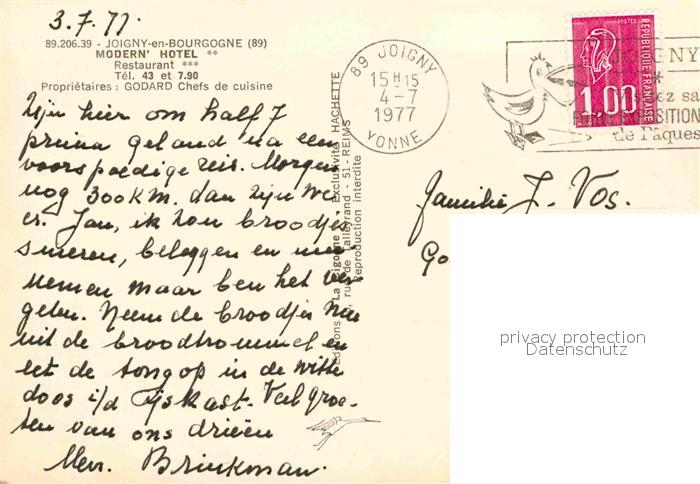 3.7.77.
89.206.39 - JOIGNY-en-BOURGOGNE (89)
MODERN' HOTEL **
Restaurant ***
Tél. 43 et 7.90
Propriétaires : GODARD Chefs de cuisine
Zijn hier om half 7
prima geland na een
voorspoedige reis. Morgen
nog 300 KM. dan zijn we
er. Jan, ik zou broodjes
smeren, beleggen en mee
nemen maar ben het ver
geten. Neem de broodjes
uit de broodtrommel en
eet de tong op in de witte
doos i/d IJskast. Veel groe-
ten van ons drieën
Mevr. Brinkman.
Editions "La Cigogne", Exclusivité HACHETTE
, rue de Talleyrand - 51 - REIMS
Reproduction interdite
89 JOIGNY
15 H 15
4-7
1977
YONNE
JOIGNY
EXPOSITION
de Pâques
POSTES
1,00
REPUBLIQUE FRANÇAISE
familie J. Vos.
Go
privacy protection
Datenschutz